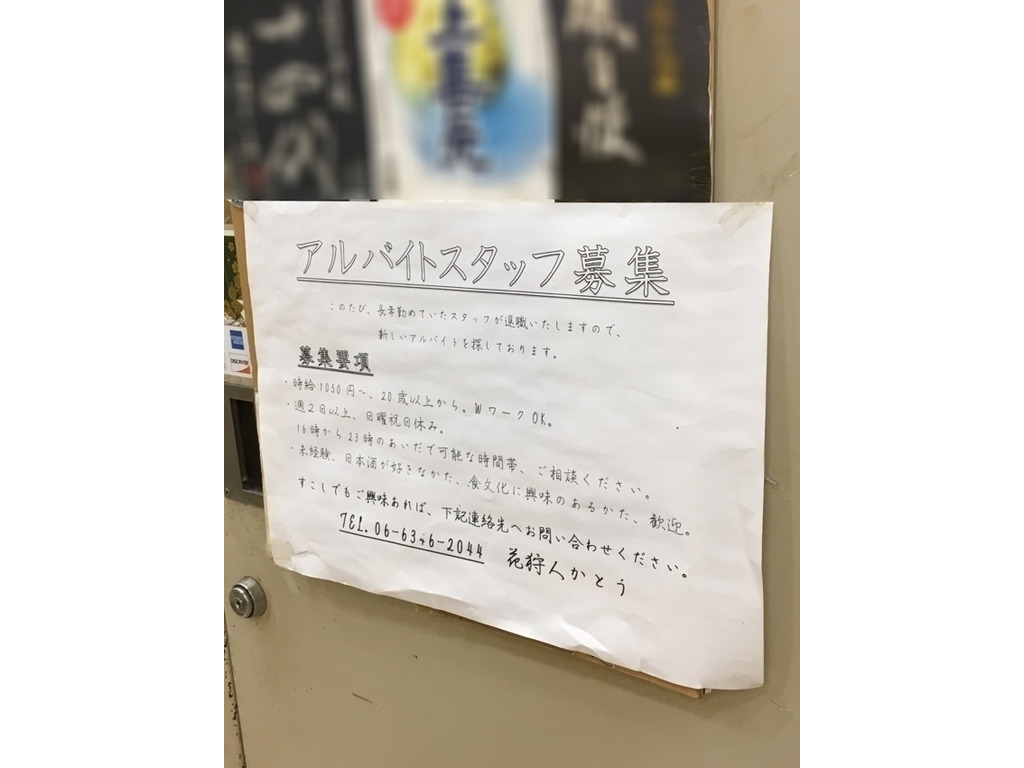 十四代
AMERICAN EXPRESS
DISCOVER
アルバイトスタッフ募集
このたび、長年勤めていたスタッフが退職いたしますので、
新しいアルバイトを探しております。
募集要項
・時給1050円〜、20歳以上から。WワークOK。
・週2日以上、日曜祝日休み。
16時から23時のあいだで可能な時間帯、ご相談ください。
・未経験、日本酒が好きなかた、食文化に興味のあるかた、歓迎。
すこしでもご興味あれば、下記連絡先へお問い合わせください。
TEL.
花狩人かとう